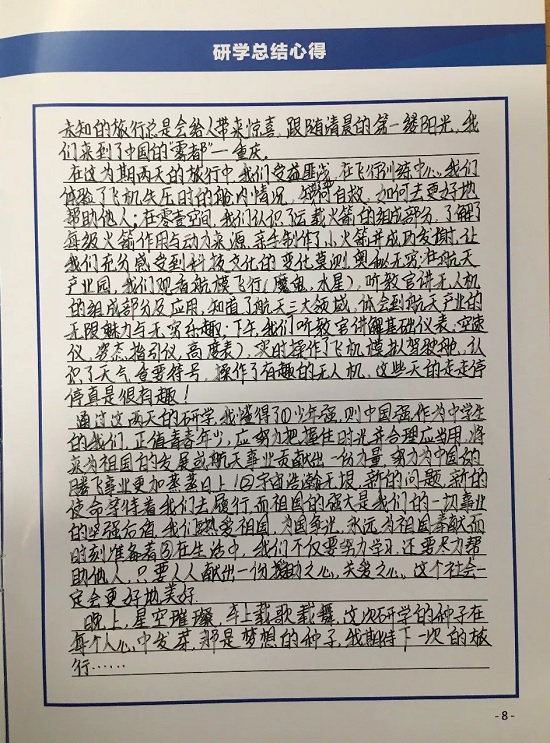 研学总结心得
未知的旅行总是会给人带来惊喜,跟随清晨的第一缕阳光,我
们来到了中国的"雾都"—重庆。
在这为期两天的旅行中,我们受益匪浅,在飞行训练中心,我们
体验了飞机失压时的舱内情况,如何自救,如何去更好地
帮助他人;在零壹空间,我们认识了运载火箭的组成部分,了解了
每级火箭作用与动力来源,亲手制作了小火箭并成功发射,让
我们充分感受到科技文化的变化莫测奥秘无穷;在航天
产业园,我们观看航模飞行(魔鬼,水星),听教官讲无人机
的组成部分及应用,知道了航天三大领域,体会到航天产业的
无限魅力与无穷乐趣;下午,我们听教官讲解基础仪表(空速
仪,姿态指引仪,高度表),实时操作了飞机模拟驾驶舱,认
识了天气重要符号,操作了有趣的无人机,这些天的走走停
停真是很有趣!
通过这两天的研学,我懂得了①少年强,则中国强,作为中学生
的我们,正值青春年少,应努力把握住时光并合理应当用,将
来为祖国的发展或航天事业贡献出一份力量,努力为中国的
腾飞事业更加蒸蒸日上!②宇宙浩瀚无垠,新的问题,新的
使命等待着我们去履行,而祖国的强大是我们的一切事业
的坚强后盾,我们热爱祖国,为国争光,永远为祖国奉献而
时刻准备着③在生活中,我们不仅要努力学习,还要尽力帮
助他人,只要人人献出一份援助之心,关爱之心,这个社会一
定会更好地美好.
晚上,星空璀璨,车上载歌载舞,这次研学的种子在
每个人心中发芽,那是梦想的种子,我期待下一次的旅
行……
- 8 -